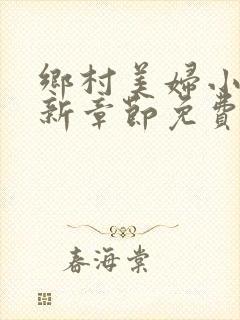 鄉村美婦小
新章節免費
春海棠